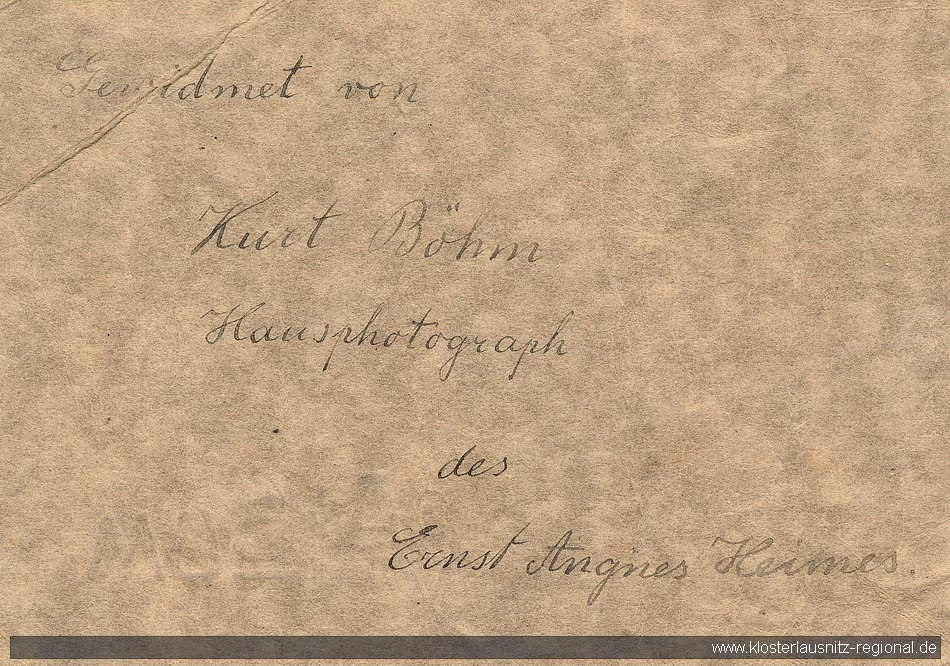 Gewidmet von
Kurt Böhm
Hausphotograph
des
Ernst Angnes Heimes.
www.klosterlausnitz-regional.de